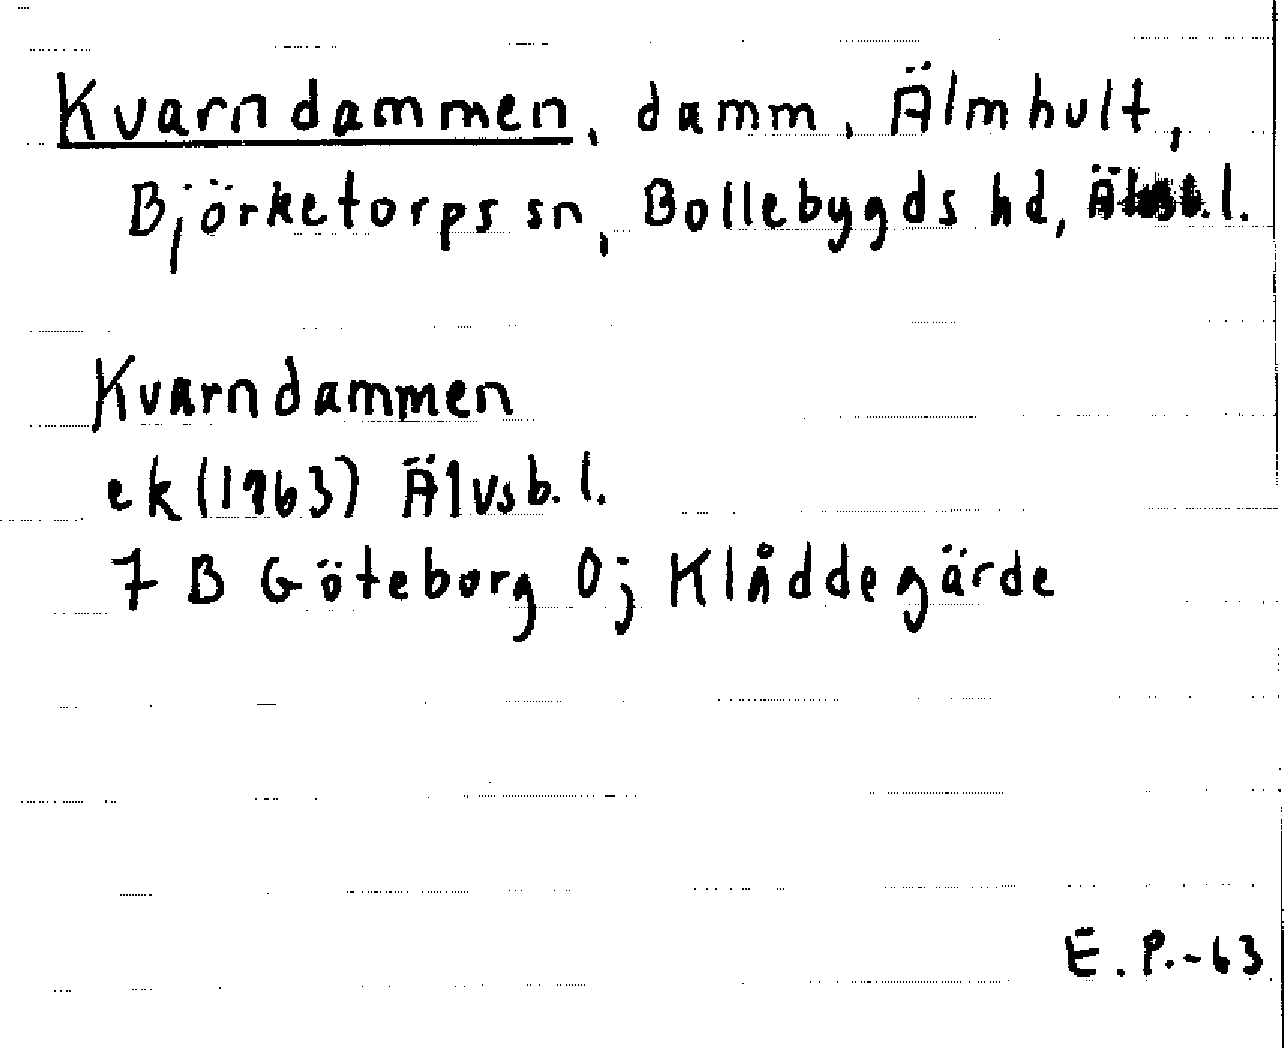 Kvarndammen, damm, Älmhult,
Björketorps sn, Bollebygds hd, Älvsb.l.
Kvarndammen
ek (1963) Älvsb.l.
7 B Göteborg 0j Klåddegärde
E.P.-63